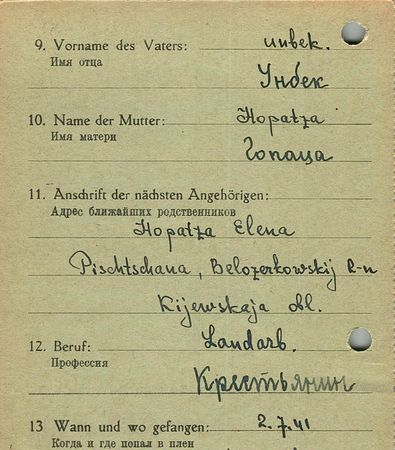 9. Vorname des Vaters: unbek.
Имя отца Унбек
10. Name der Mutter: Hopatza
Имя матери Гопаца
11. Anschrift der nächsten Angehörigen:
Адрес ближайших родственников
Hopatza Elena
Pischtschana, Belozerkowskij R-n
Kijewskaja obl.
12. Beruf: Landarb.
Профессия Крестьянин
13 Wann und wo gefangen: 2.7.41
Когда и где попал в плен